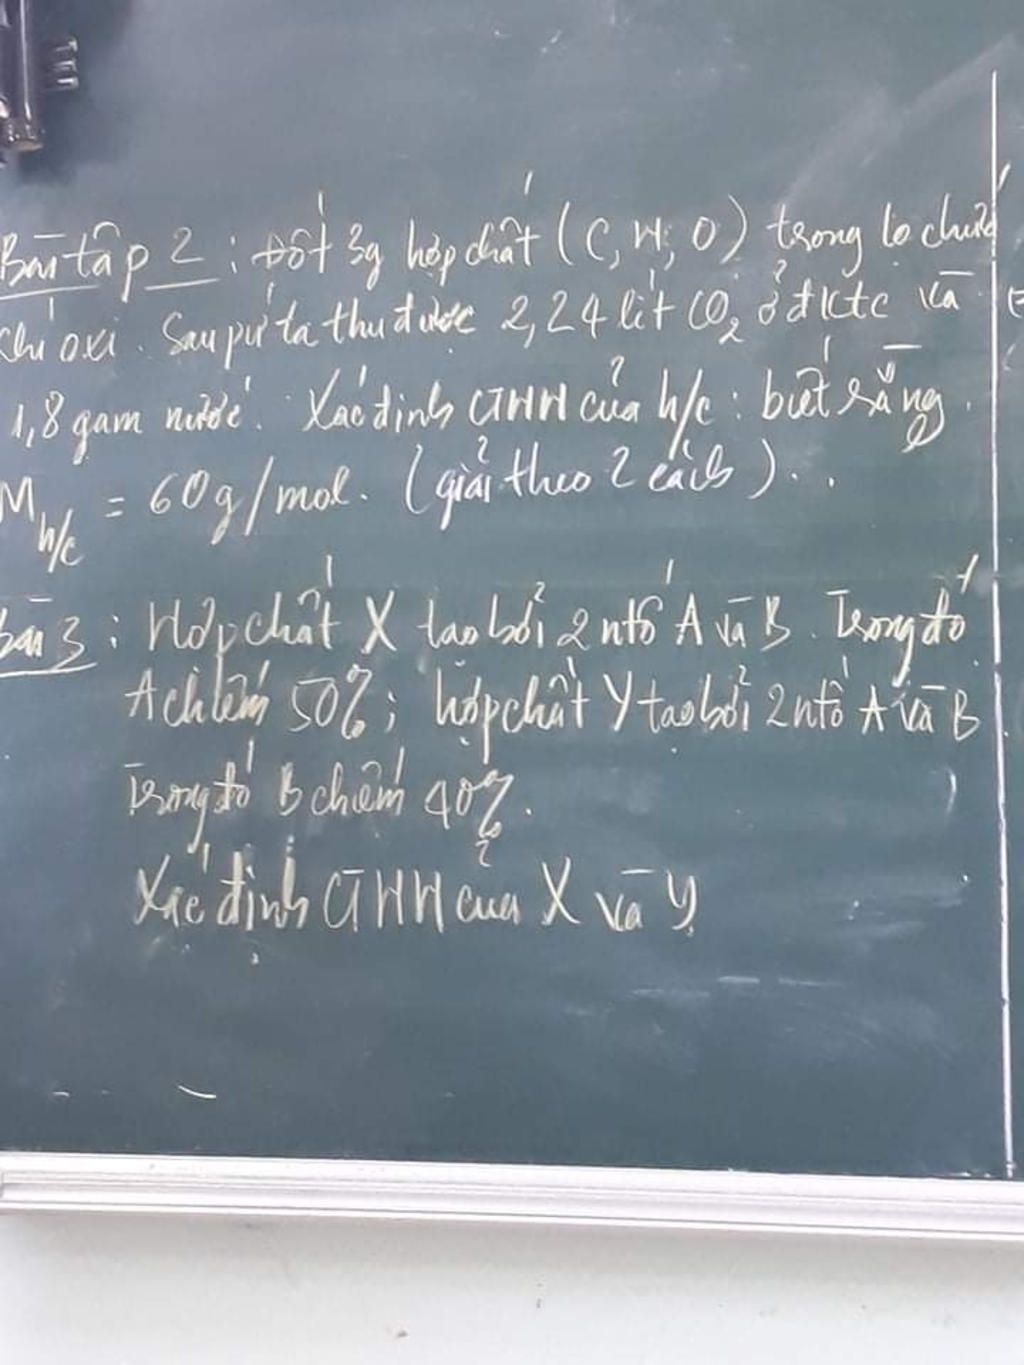 Bài tập 2: Đốt 3g hợp chất (C, H, O) trong lọ chứa
khí oxi. Sau pứ ta thu được 2,24 lít CO₂ ở đktc và
1,8 gam nước. Xác định CTHH của h/c: biết rằng
M h/c = 60g/mol. (giải theo 2 cách)...
bài 3: Hợp chất X tạo bởi 2 ntố A và B. Trong đó
A chiếm 50%; hợp chất Y tạo bởi 2 ntố A và B
Trong đó B chiếm 40%.
Xác định CTHH của X và Y